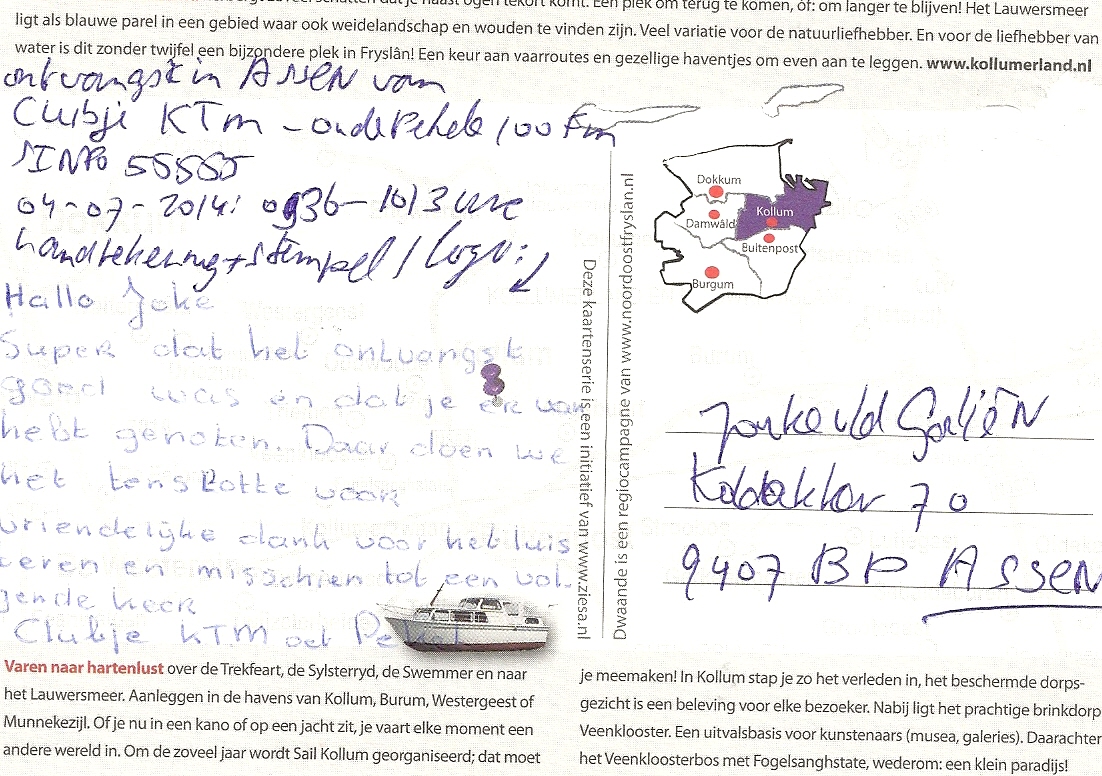 ligt als blauwe parel in een gebied waar ook weidelandschap en wouden te vinden zijn. Veel variatie voor de natuurliefhebber. En voor de liefhebber van
water is dit zonder twijfel een bijzondere plek in Fryslân! Een keur aan vaarroutes en gezellige haventjes om even aan te leggen. www.kollumerland.nl
ontvangst in Assen van
Clubje KTM - oude Pekela 100 Fm
SINPO 55555
04-07-2014: 0936-1013 ure
handtekening + stempel / logo:
Hallo Joke
Super dat het ontvangst
goed was en dat je er van
hebt genoten. Daar doen we
het tenslotte voor
Vriendelijke dank voor het luis
teren en misschien tot een vol
gende keer
Clubje KTM oet Pekel
Deze kaartenserie is een initiatief van www.ziesa.nl
Dwaande is een regiocampagne van www.noordoostfryslan.nl
Dokkum
Kollum
Damwâld
Buitenpost
Burgum
70
9407 BP Assen
Varen naar hartenlust over de Trekfeart, de Sylsterryd, de Swemmer en naar
het Lauwersmeer. Aanleggen in de havens van Kollum, Burum, Westergeest of
Munnekezijl. Of je nu in een kano of op een jacht zit, je vaart elke moment een
andere wereld in. Om de zoveel jaar wordt Sail Kollum georganiseerd; dat moet
je meemaken! In Kollum stap je zo het verleden in, het beschermde dorps-
gezicht is een beleving voor elke bezoeker. Nabij ligt het prachtige brinkdorp
Veenklooster. Een uitvalsbasis voor kunstenaars (musea, galeries). Daarachter
het Veenkloosterbos met Fogelsanghstate, wederom: een klein paradijs!